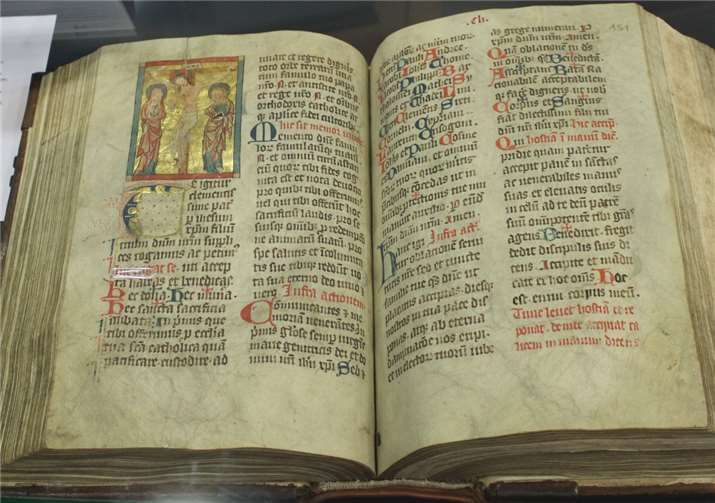 te igitur
clementissi
me pater
p ihesum
xpm filiū
tuum dnm nrm suppli
ces rogamus ac petim
Inclinat se. uti accep
ta habeas et benedicas
Hec dona. Hec munera.
Hec sancta sacrificia
illibata. In primis que
tibi offerimus p ecclesia
tua scā catholica quā
pacificare custodire ad
unare et regere digneris
toto orbe terrarum una
cum famulo tuo papa
nro N et antistite nro N
et rege nro N et oībus
orthodoxis catholice at
qz aplice fidei cultorib
Hic sit memor vivorum
Memento dne famu
lorum famularūqz tuarum
N et omnium circūastan
tiū quorum tibi fides cog
nita est et nota devotio
pro quibus tibi offerimus
vel qui tibi offerunt hoc
sacrificiū laudis pro se
suisqz omnibz p redemptiōe
animarū suarum pro
spe salutis et incolumita
tis sue tibiqz reddunt vo
ta sua eterno deo vivo et
vero Infra actionem
Communicantes et me
moriam venerantes In
pmis gliose semp virginis
marie genitricis dei et do
mini nri ihu xpi Sed et
.cli. 151
Petri Pauli Andree
Jacobi Johis Thome
Jacobi Philippi
Mathei Symonis
et Thadei Lini
Clementis Sixti
Cornelii Cypriani
Laurencii Grisogoni
Johis et Pauli Cosme
et Damiani et omnium
scorum tuorum quorum meritis
precibzqz concedas ut in
omnibz protectionis tue mu
niamur auxilio p eundē
xpm dnm nrm Amen.
Infra act
Hanc igr oblationem servi
tutis nre sed et cuncte
familie tue qs dñe ut
placatus accipias diesqz
nostros in tua pace dis
ponas atqz ab eterna
dampnatōe nos eripi
et in electorum tuorum iube
as grege numerari p
xpm dnm nrm amen
Quam oblationem tu ds
in omibz qs Benedictā
Ascriptam Ratā Ra
cionabilē acceptabilem
qz facere digneris ut nobis
Corpus et Sanguis
fiat dilectissimi filii tui
dni nri ihu xpi hic accipit
hostiam in manu dicens
Qui pridie quam pateretur
accepit panē in sanctas
ac venerabiles manus
suas et elevatis oculis
in celum ad te deū patrē
suū omnipotentē tibi grās
agens Benedixit fregit
dedit discipulis suis di
cens Accipite et mandu
cate ex hoc omnes Hoc
est enim corpus meū.
Tunc levet hostiā et re
ponat deinde accipiat ca
licem in manibus dicens